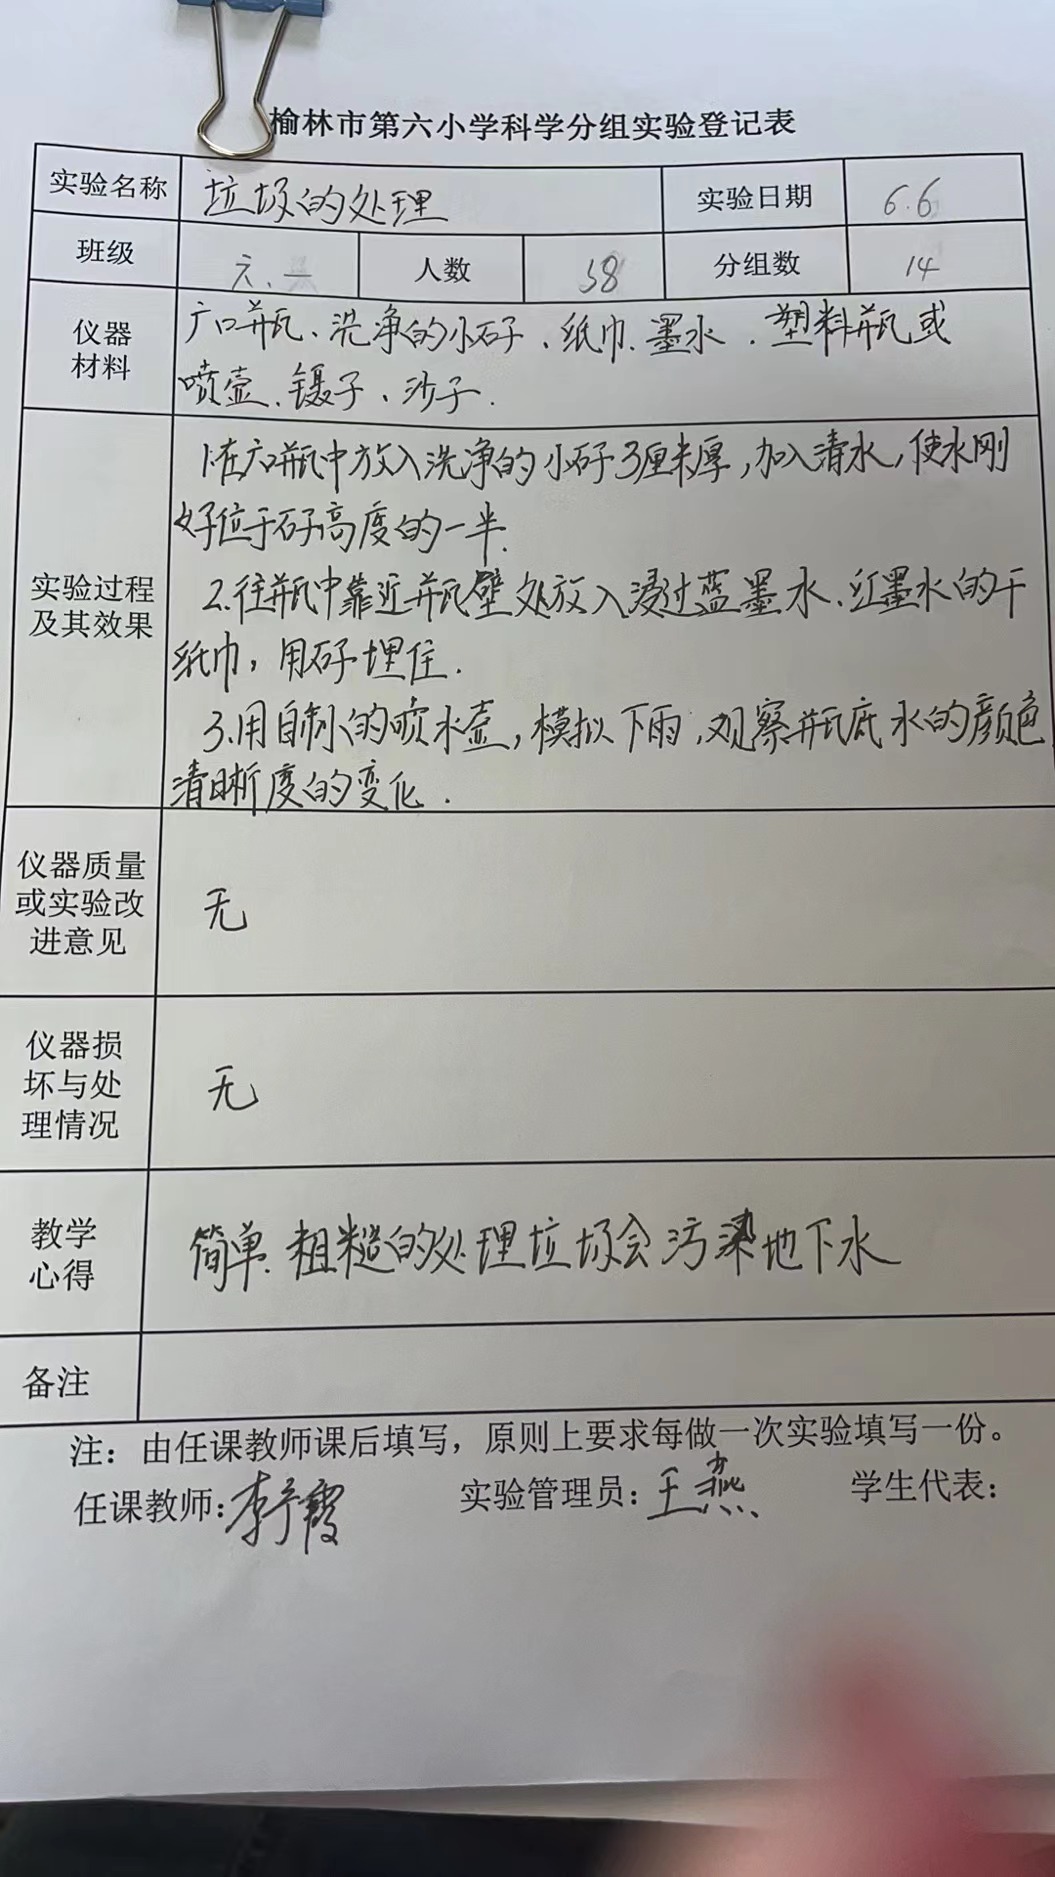 榆林市第六小学科学分组实验登记表
实验名称 垃圾的处理 实验日期 6.6
班级 六.一 人数 58 分组数 14
仪器
材料
广口瓶、洗净的小石子、纸巾.墨水.塑料瓶或
喷壶.镊子、沙子.
实验过程
及其效果
1.在广口瓶中放入洗净的小石子3厘米厚,加入清水,使水刚
好位于石子高度的一半.
2.往瓶中靠近瓶壁处放入浸过蓝墨水.红墨水的干
纸巾,用石子埋住.
3.用自制的喷水壶,模拟下雨,观察瓶底水的颜色
清晰度的变化.
仪器质量
或实验改
进意见
无
仪器损
坏与处
理情况
无
教学
心得
简单.粗糙的处理垃圾会污染地下水
备注
注:由任课教师课后填写,原则上要求每做一次实验填写一份。
任课教师:李 霞 实验管理员:王燕 学生代表: